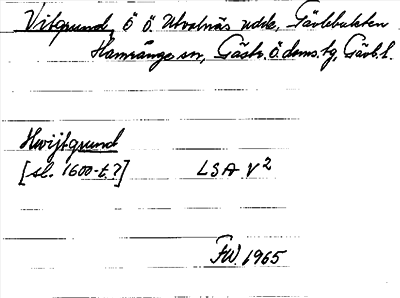 Vitgrund, ö Ö. Utvalnäs udde, Gävlebukten
Hamrånge sn, Gästr. Ö. doms. tg, Gävl. l.
Hwijtgrund
[sl. 1600-t.?] LSA V²
FW. 1965